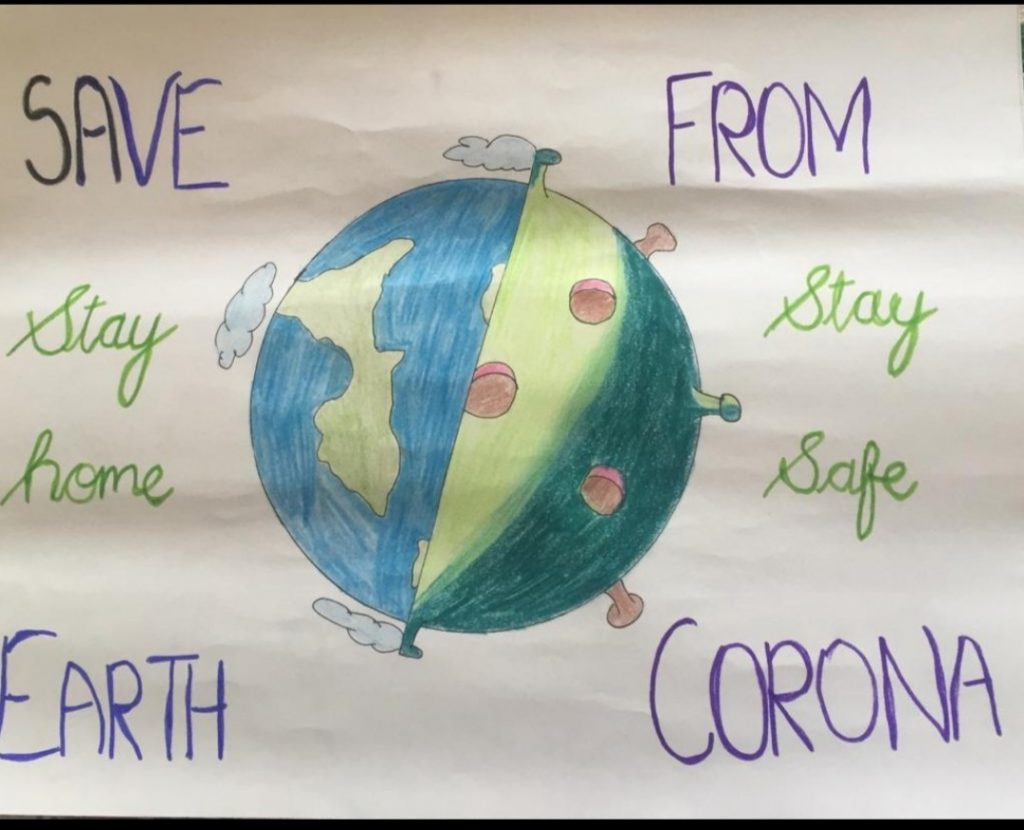 SAVE
FROM
Stay
home
Stay
Safe
EARTH
CORONA